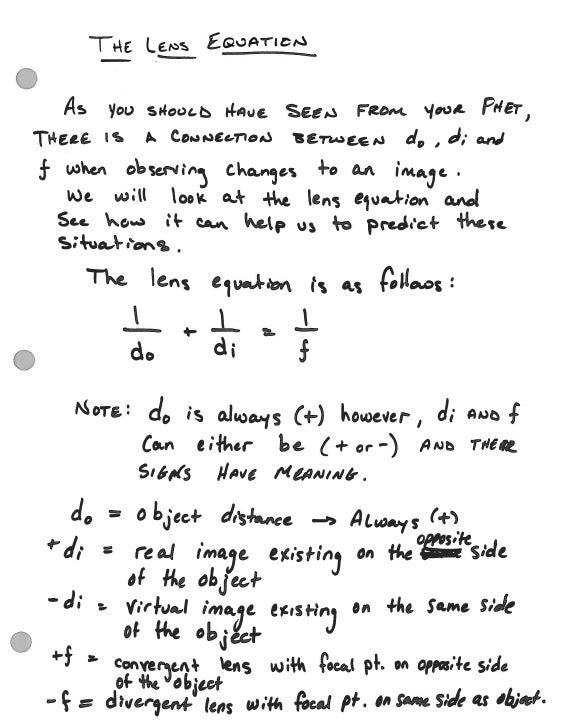 THE LENS EQUATION
AS YOU SHOULD HAVE SEEN FROM YOUR PHET,
THERE IS A CONNECTION BETWEEN do, di and
f when observing changes to an image.
We will look at the lens equation and
See how it can help us to predict these
situations.
The lens equation is as follows:
1/do + 1/di = 1/f
NOTE: do is always (+) however, di AND f
Can either be (+ or -) AND THEIR
SIGNS HAVE MEANING.
do = object distance → Always (+)
+di = real image existing on the opposite side
of the object
-di = virtual image existing on the same side
of the object
+f = convergent lens with focal pt. on opposite side
of the object
-f = divergent lens with focal pt. on same side as object.